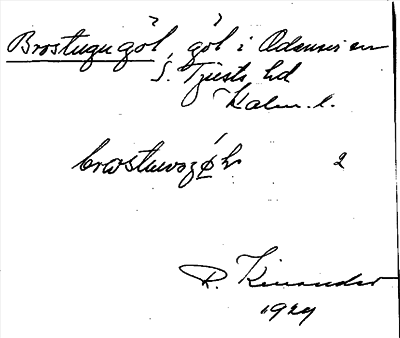 Brostugugöl, göl i Odensvi sn
S. Tjusts hd
Kalm. l.
2
R. Kinander
1929